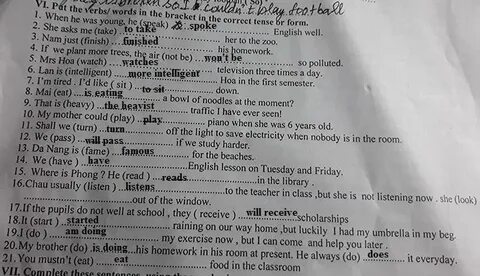 so I couldn't play football
VI. Put the verbs/ words in the bracket in the correct tense or form.
1. When he was young, he (speak) spoke English well.
2. She asks me (take) ..to take her to the zoo.
3. Nam just (finish) ..finished his homework.
4. If we plant more trees, the air (not be) ..won't be so polluted.
5. Mrs Hoa (watch) ..watches television three times a day.
6. Lan is (intelligent) ....more intelligent Hoa in the first semester.
7. I'm tired . I'd like ( sit ) ..to sit down.
8. Mai (eat) ...is eating a bowl of noodles at the moment?
9. That is (heavy) ...the heavist traffic I have ever seen!
10. My mother could (play) ..play piano when she was 6 years old.
11. Shall we (turn) ...turn off the light to save electricity when nobody is in the room.
12. We (pass) will pass if we study harder.
13. Da Nang is (fame) ..famous for the beaches.
14. We (have ) ..have English lesson on Tuesday and Friday.
15. Where is Phong ? He (read ) ..reads in the library .
16.Chau usually (listen ) ..listens to the teacher in class ,but she is not listening now . she (look)
out of the window.
17.If the pupils do not well at school , they ( receive ) will receive scholarships
18.It (start ) started raining on our way home ,but luckily I had my umbrella in my beg.
19.I (do ) am doing my exercise now , but I can come and help you later .
20.My brother (do) is doing his homework in his room at present. He always (do) does it everyday.
21. You mustn't (eat) eat food in the classroom
VII. Complete these sentences